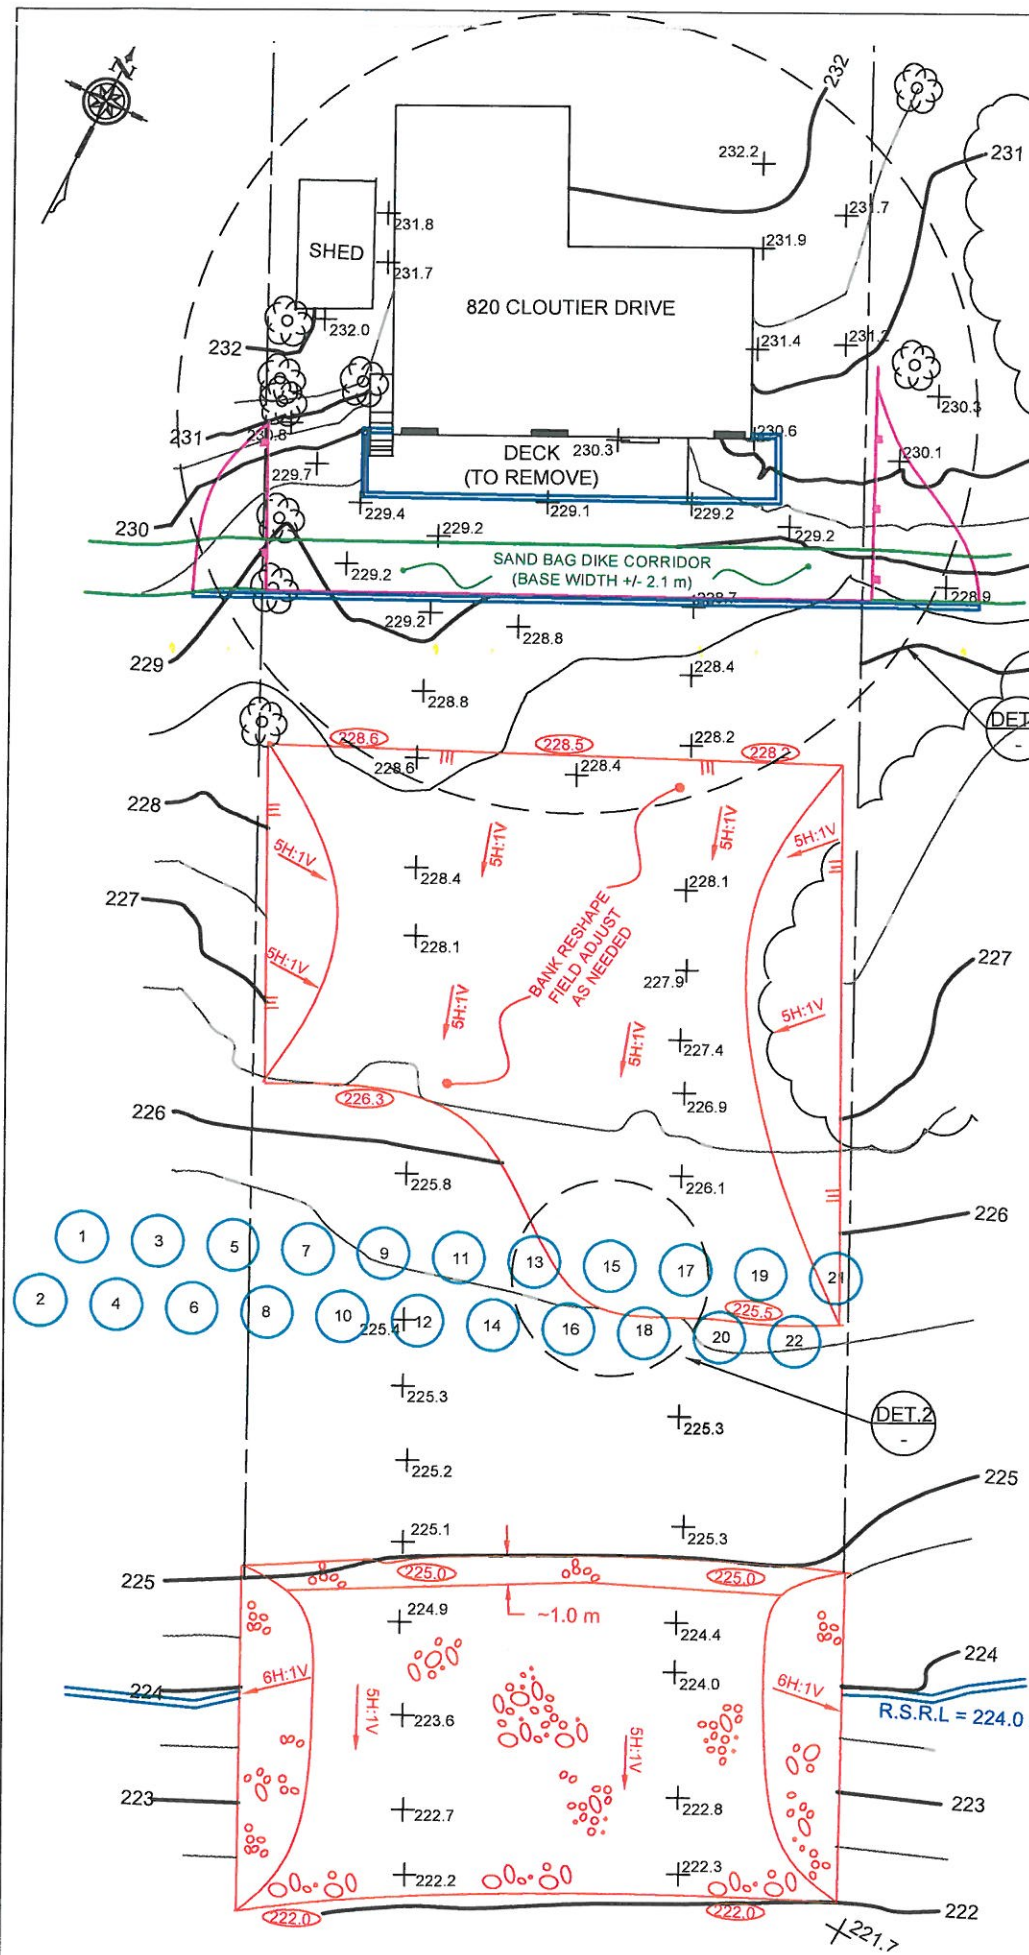 N
232
232.2
231
231.8
231.7
SHED
231.9
231.7
820 CLOUTIER DRIVE
232.0
232
231.4
231.2
230.3
231
230.8
230.6
230.3
DECK
(TO REMOVE)
229.7
230.1
230
229.4
229.1
229.2
229.2
229.2
SAND BAG DIKE CORRIDOR
(BASE WIDTH +/- 2.1 m)
229.2
228.9
228.7
229.2
228.8
229
228.4
228.8
DET.
-
228.6
228.5
228.2
228.2
228.6
228.4
228
5H:1V
5H:1V
5H:1V
5H:1V
228.4
228.1
227
BANK RESHAPE
FIELD ADJUST
AS NEEDED
228.1
227.9
227
5H:1V
5H:1V
5H:1V
5H:1V
227.4
226.3
226.9
226
225.8
226.1
226
1
3
5
7
9
11
13
15
17
19
21
2
4
6
8
10
225.4
12
14
16
18
20
22
225.5
225.3
225.3
DET.2
-
225.2
225
225.1
225.3
225
225.0
225.0
~1.0 m
224.9
224.4
224
6H:1V
224.0
6H:1V
224
R.S.R.L = 224.0
5H:1V
223.6
5H:1V
223
222.7
222.8
223
222.2
222.3
222.0
222.0
222
221.7